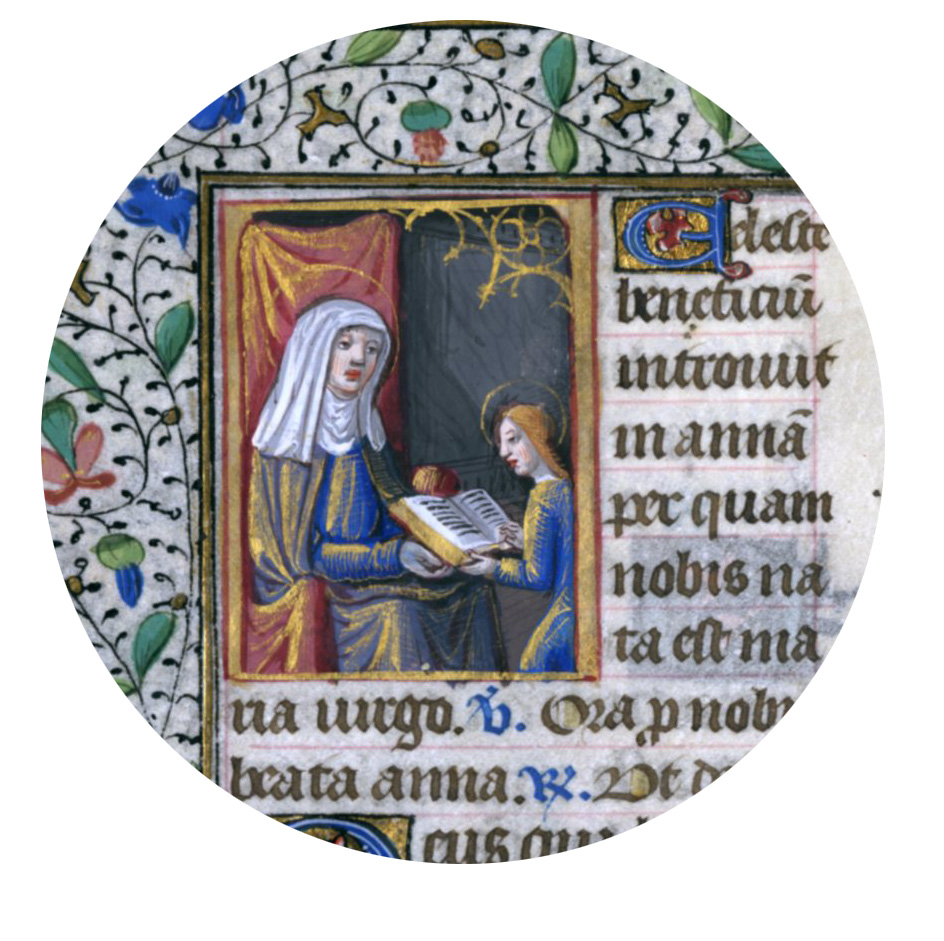 Celeste
beneficiū
introiuit
in annā
per quam
nobis na
ta est ma
ria uirgo. ℣. Ora p nob
beata anna. ℟. Vt d
eus qui